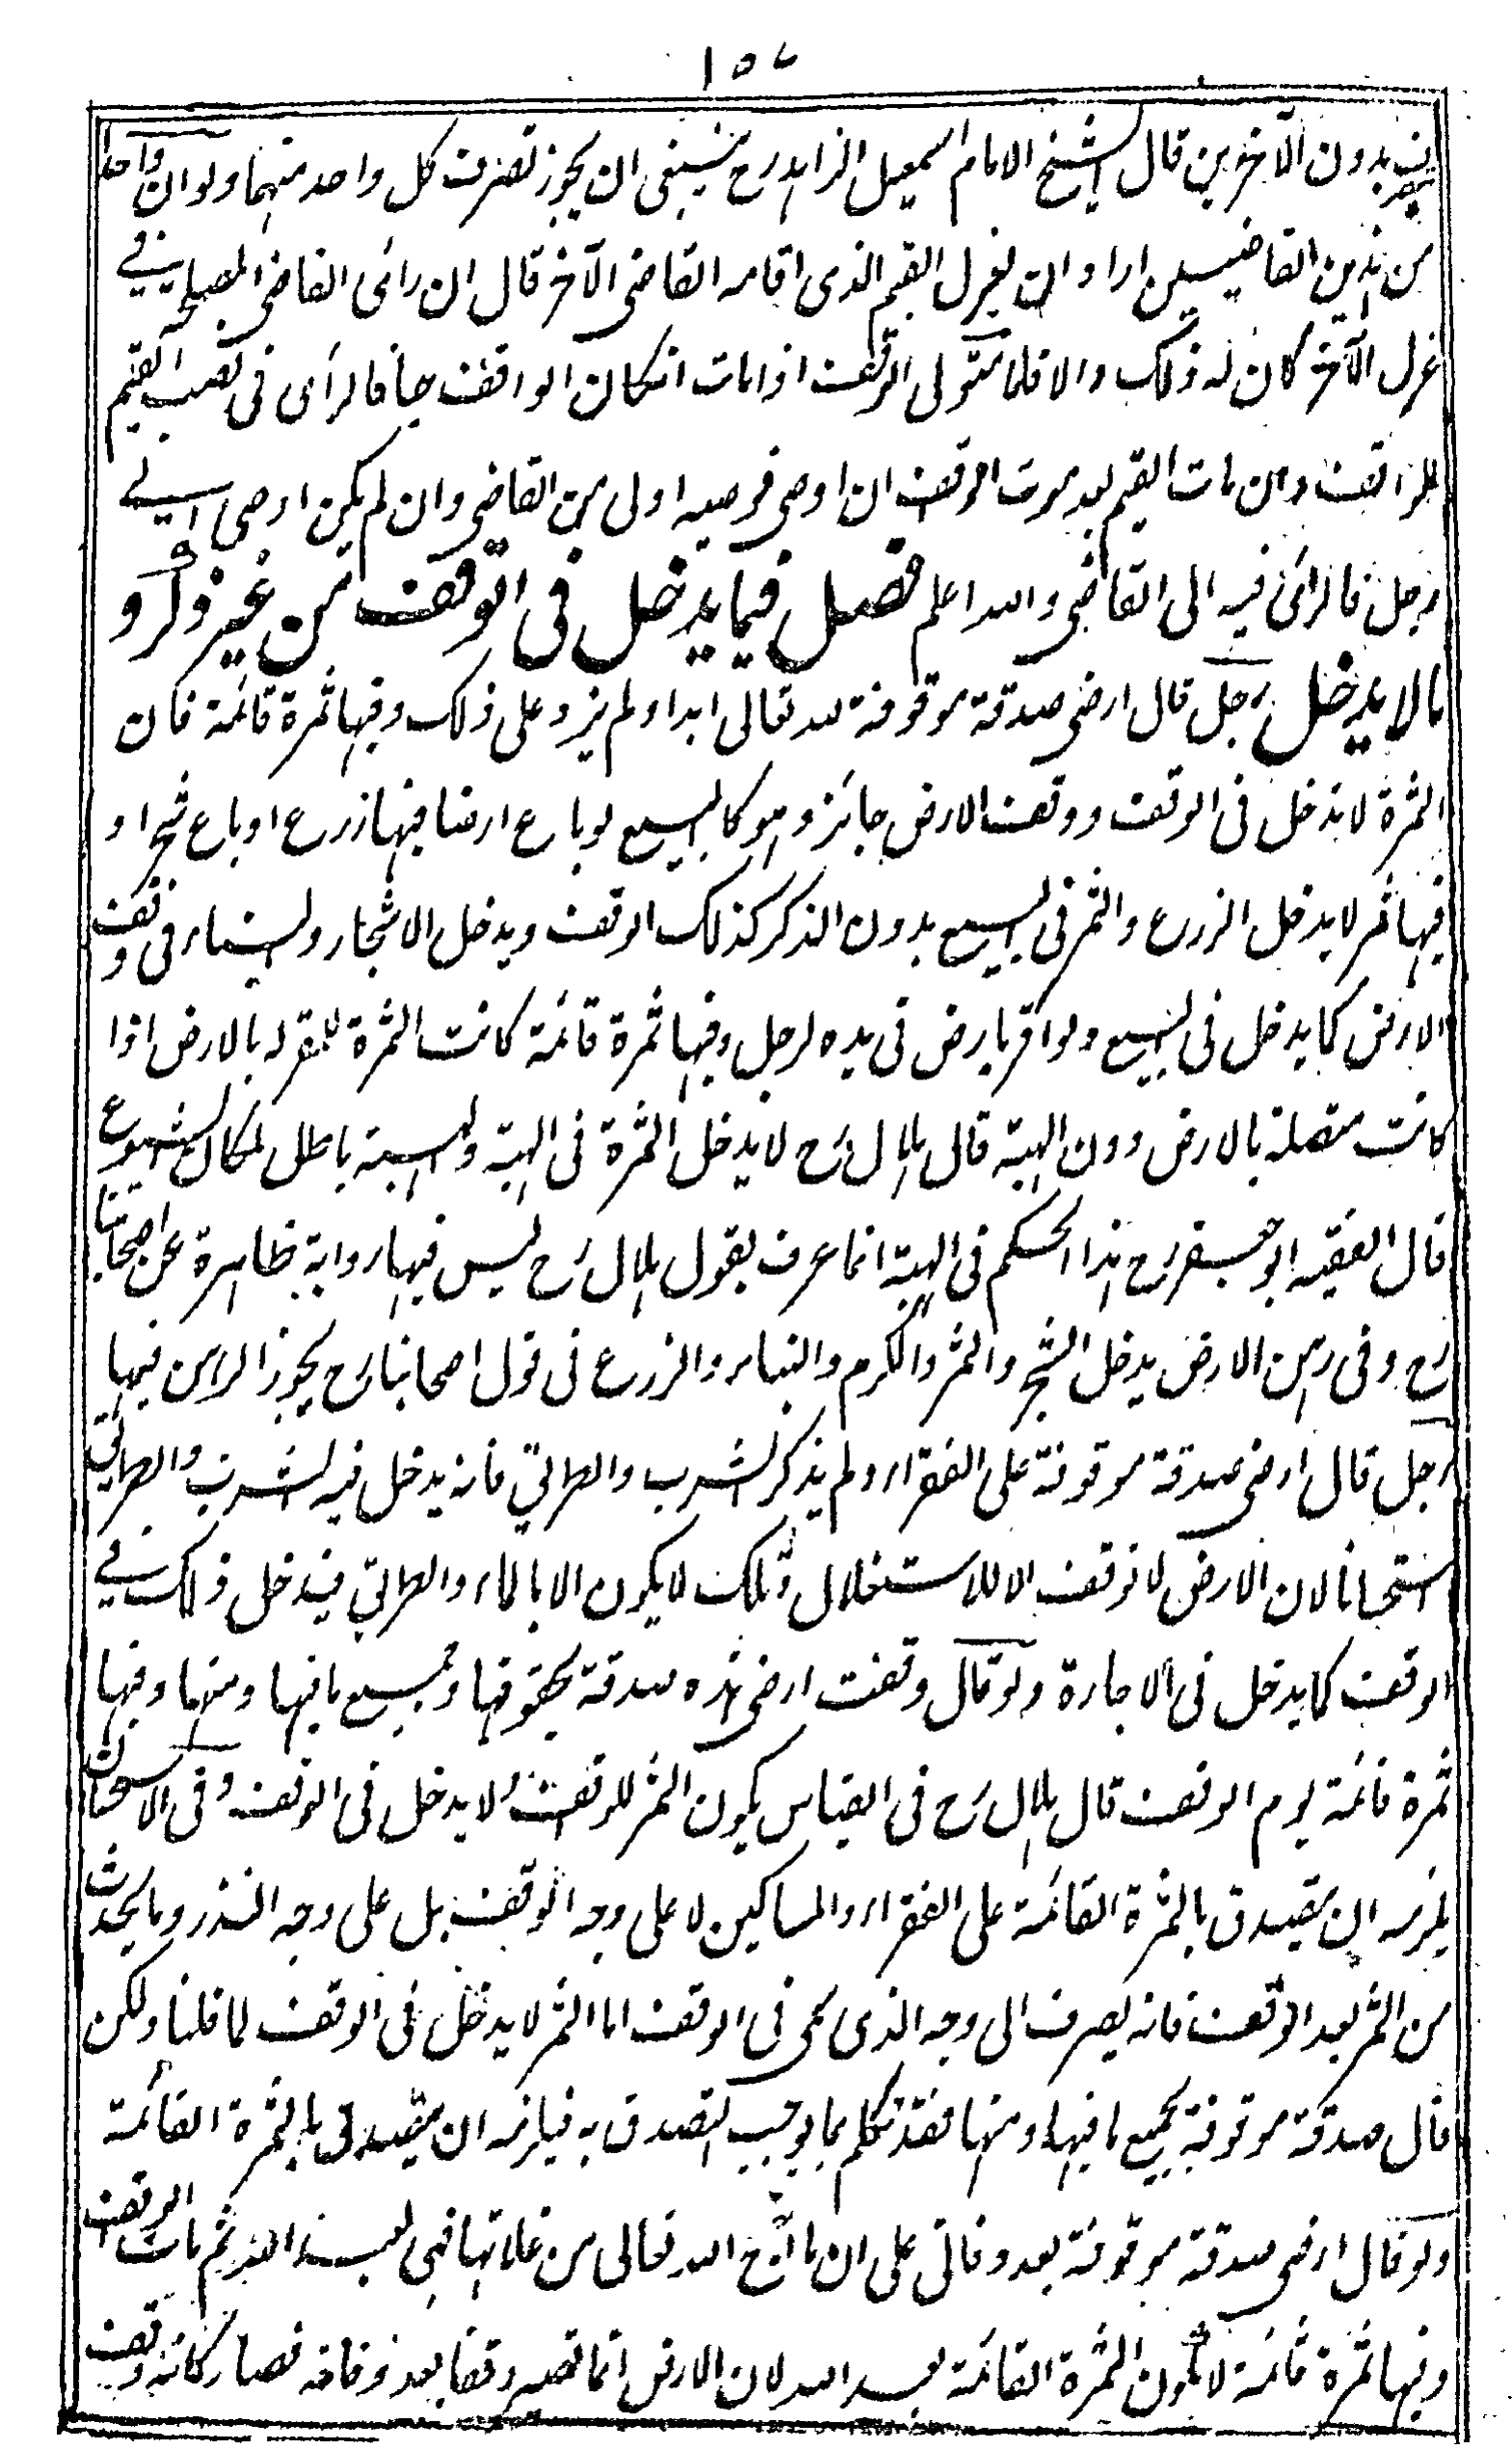 ١٥٧
يتصرف بدون الآخرين قال الشيخ الامام اسمعيل الزاهد رح ينبغى ان يجوز تصرف كل واحد منهما ولو ان واحدا
من هذين القاضيين اراد ان يعزل القيم الذى اقامه القاضى الآخر قال ان رأى القاضى المصلحة في
عزل الآخر كان له ذلك والا فلا متولى الوقف اذا مات انكان الواقف حيا فالرأى فى نصب القيم
للواقف وان مات القيم بعد موت الواقف ان اوصى فوصيه اولى من القاضى وان لم يكن اوصى الى
رجل فالرأى فيه الى القاضى والله اعلم فصل فيما يدخل فى الوقف من غير ذكر و
ما لا يدخل رجل قال ارضى صدقة موقوفة لله تعالى ابدا ولم يزد على ذلك وفيها ثمرة قائمة فان
الثمرة لا تدخل فى الوقف ووقف الارض جائز وهو كالبيع لو باع ارضا فيها زرع او باع شجرا و
فيها ثمر لا يدخل الزرع والثمر فى البيع بدون الذكر كذلك الوقف ويدخل الاشجار والبناء فى وقف
الارض كما يدخل فى البيع ولو اقر بارض فى يده لرجل وفيها ثمرة قائمة كانت الثمرة للمقر له بالارض اذا
كانت متصلة بالارض دون الهبة قال هلال رح لا يدخل الثمرة فى الهبة والهبة باطل لمكان الشيوع
قال الفقيه ابو جعفر رح هذا الحكم فى الهبة انما عرف بقول هلال رح ليس فيها رواية ظاهرة عن اصحابنا
رح وفى رهن الارض يدخل الشجر والثمر والكرم والبناء والزرع فى قول اصحابنا رح يجوز الرهن فيها
رجل قال ارضى صدقة موقوفة على الفقراء ولم يذكر الشرب والطريق فانه يدخل فيه الشرب والطريق
استحسانا لان الارض لا توقف الا للاستغلال وذلك لا يكون الا بالماء والطريق فيدخل ذلك في
الوقف كما يدخل فى الاجارة ولو قال وقفت ارضى هذه صدقة بحقوقها وجميع ما فيها ومنها وفيها
ثمرة قائمة يوم الوقف قال هلال رح فى القياس يكون الثمر للواقف ولا يدخل فى الوقف وفى الاستحسان
يلزمه ان يتصدق بالثمرة القائمة على الفقراء والمساكين لا على وجه الوقف بل على وجه النذر وما يحدث
من الثمر بعد الوقف فانه يصرف الى وجه الذى سمى فى الوقف اما الثمر لا يدخل فى الوقف لما قلنا ولكن
قال صدقة موقوفة بجميع ما فيها ومنها فقد تكلم بما يوجب التصدق به فيلزمه ان يتصدق بالثمرة القائمة
ولو قال ارضى صدقة موقوفة بعد وفاتى على ان ما اخرج الله تعالى من غلاتها فهى لعبد الله ثم مات الواقف
وفيها ثمرة قائمة لا يكون الثمرة القائمة لعبد الله لان الارض انما تصير وقفا بعد وفاته فصار كانه وقف